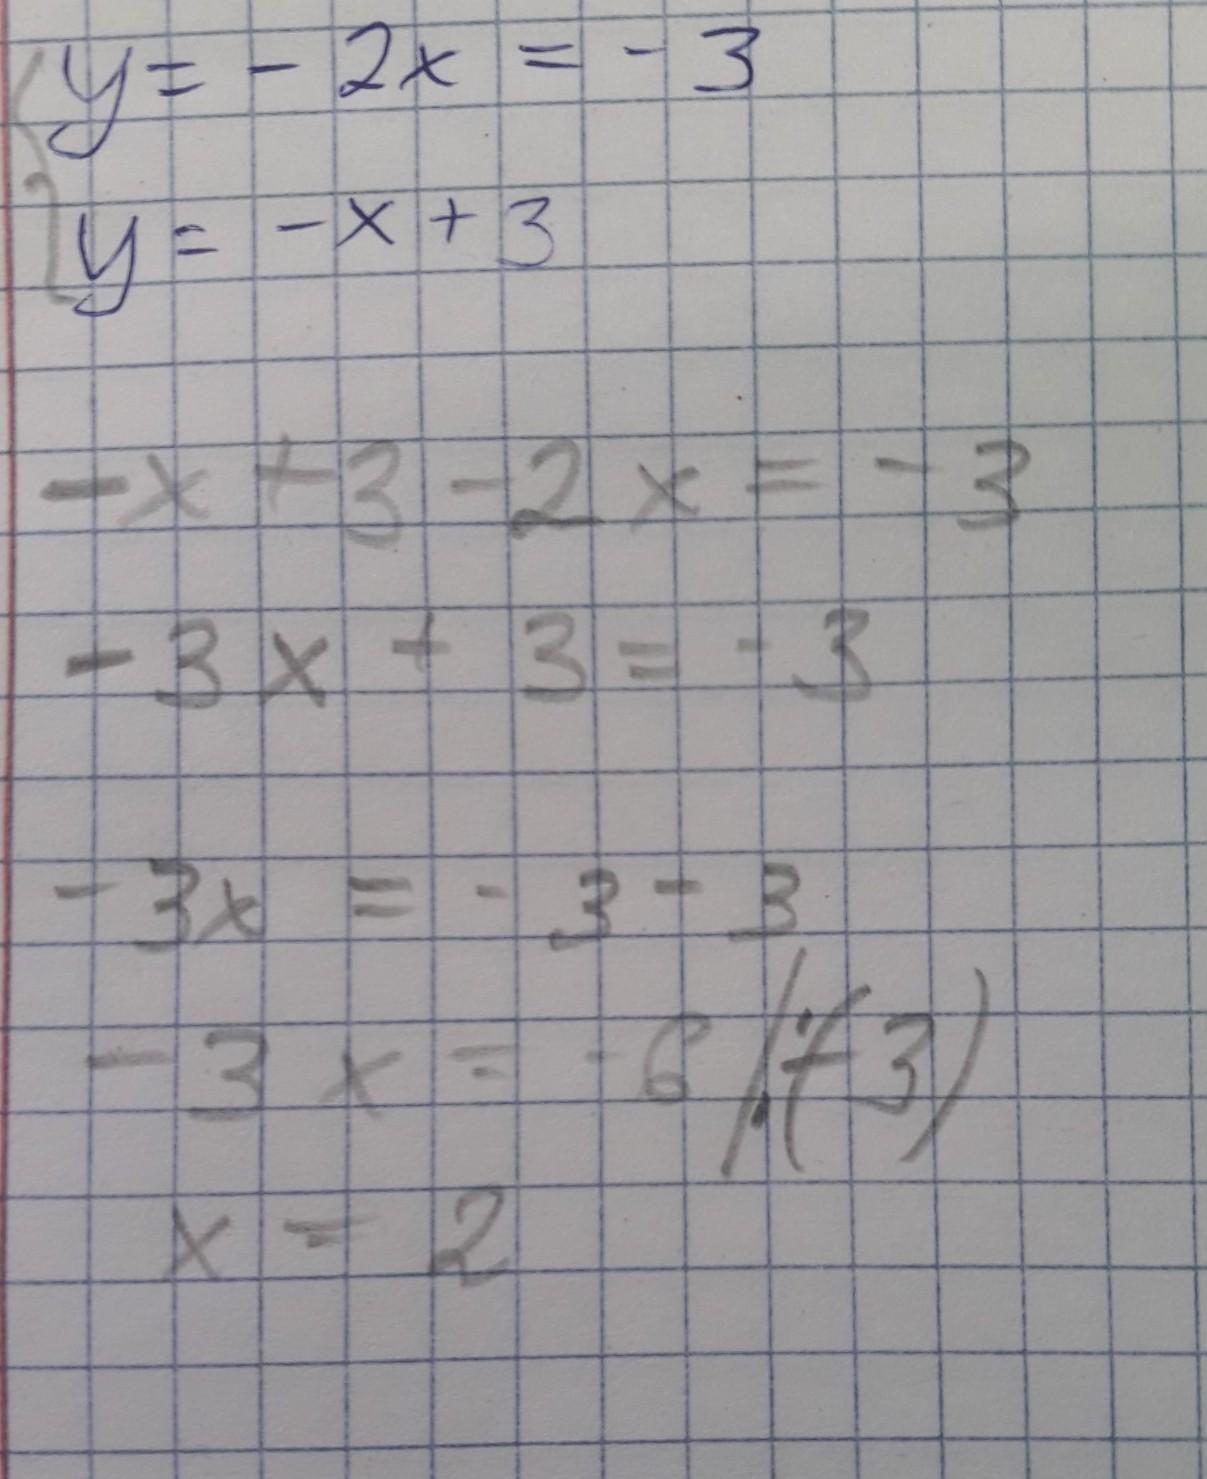 y = - 2x = - 3
y = - x + 3
- x + 3 - 2x = - 3
- 3x + 3 = - 3
- 3x = - 3 - 3
- 3x = - 6 /:(-3)
x = 2